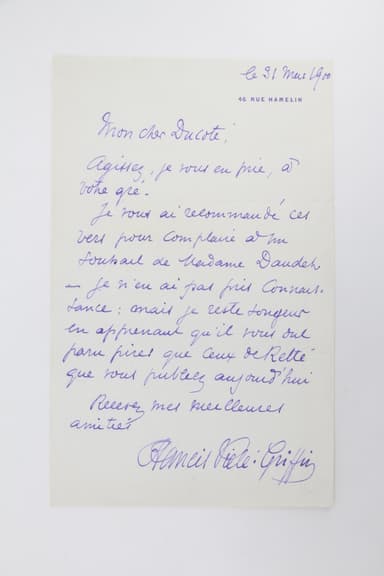 le 31 Mars 1900
46 RUE HAMELIN
Mon cher Ducoté,
Agissez, je vous en prie, à
votre gré.
Je vous ai recommandé ces
vers pour complaire à un
souhait de Madame Daudet
— je n'en ai pas pris connais-
sance : mais je reste songeur
en apprenant qu'il vous ont
paru pires que ceux de Retté
que vous publiez aujourd'hui
Recevez mes meilleures
amitiés
Francis Vielé-Griffin